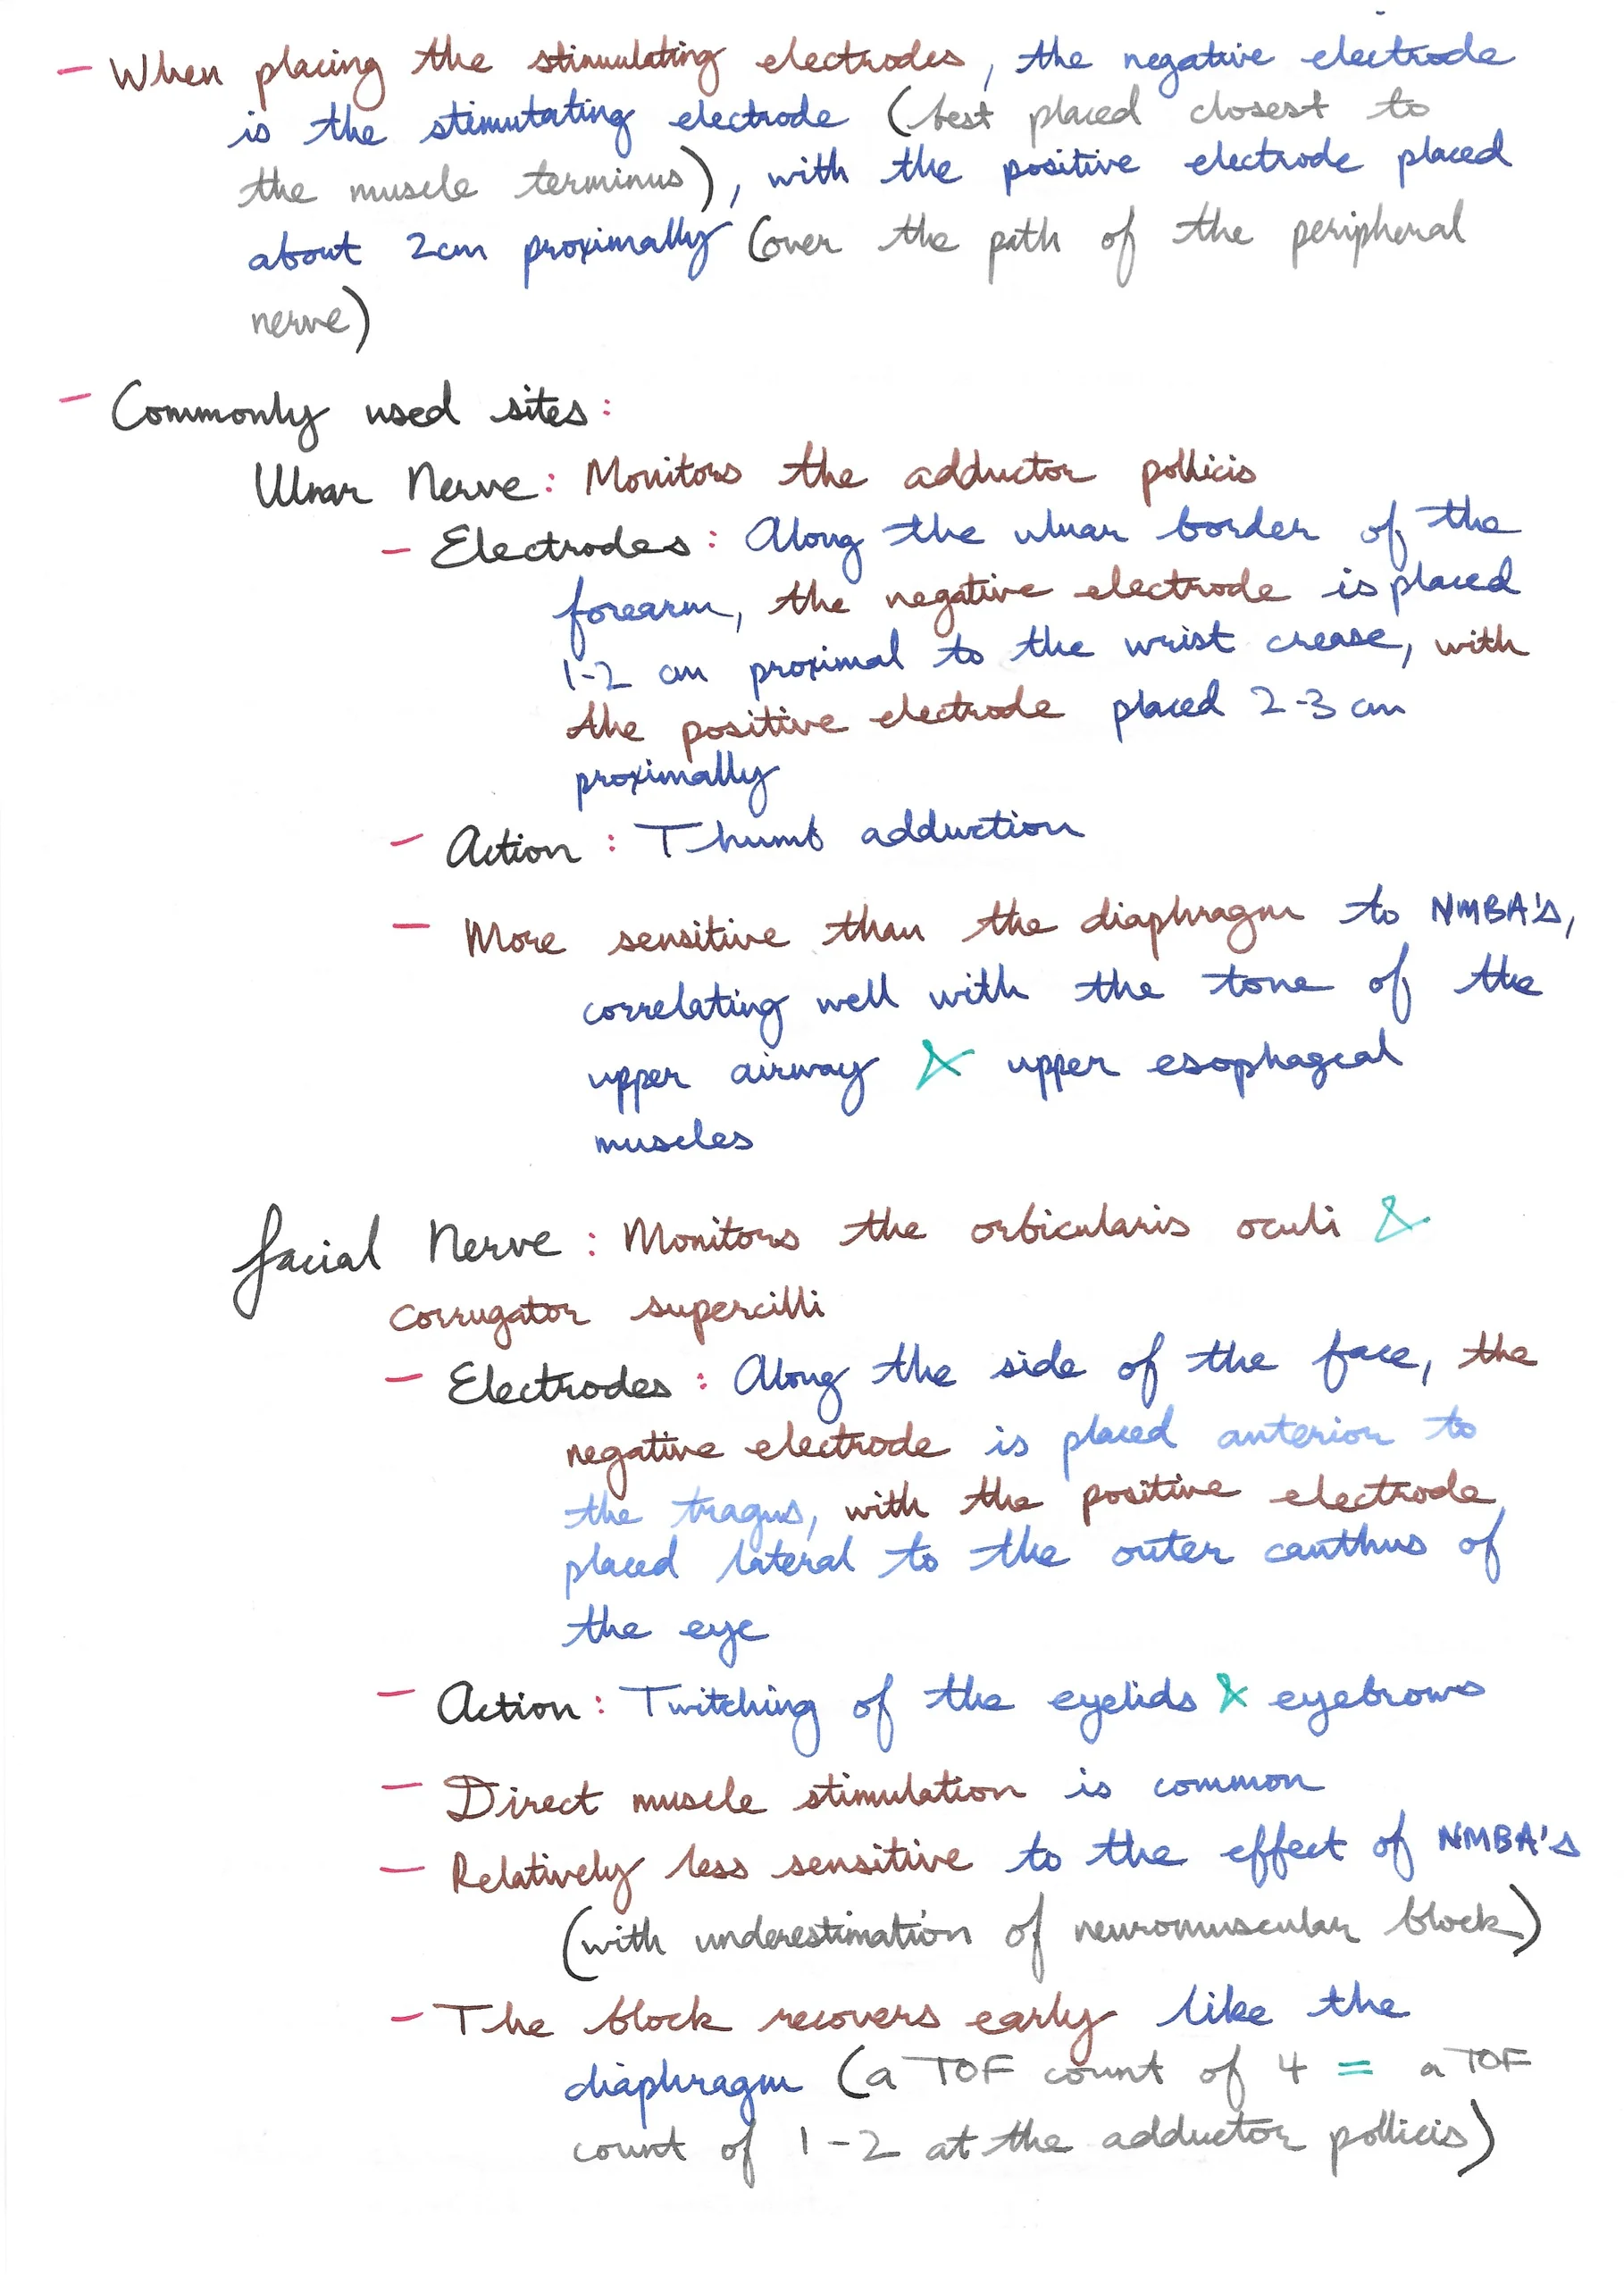 - When placing the stimulating electrodes, the negative electrode
is the stimutating electrode (best placed closest to
the muscle terminus), with the positive electrode placed
about 2cm proximally (over the path of the peripheral
nerve)
- Commonly used sites:
Ulnar Nerve: Monitors the adductor pollicis
- Electrodes: Along the ulnar border of the
forearm, the negative electrode is placed
1-2 cm proximal to the wrist crease, with
the positive electrode placed 2-3 cm
proximally
- Action: Thumb adduction
- More sensitive than the diaphragm to NMBA's,
correlating well with the tone of the
upper airway & upper esophageal
muscles
Facial Nerve: Monitors the orbicularis oculi &
corrugator supercilli
- Electrodes: Along the side of the face, the
negative electrode is placed anterior to
the tragus, with the positive electrode
placed lateral to the outer canthus of
the eye
- Action: Twitching of the eyelids & eyebrows
- Direct muscle stimulation is common
- Relatively less sensitive to the effect of NMBA's
(with underestimation of neuromuscular block)
- The block recovers early like the
diaphragm (a TOF count of 4 = a TOF
count of 1-2 at the adductor pollicis)